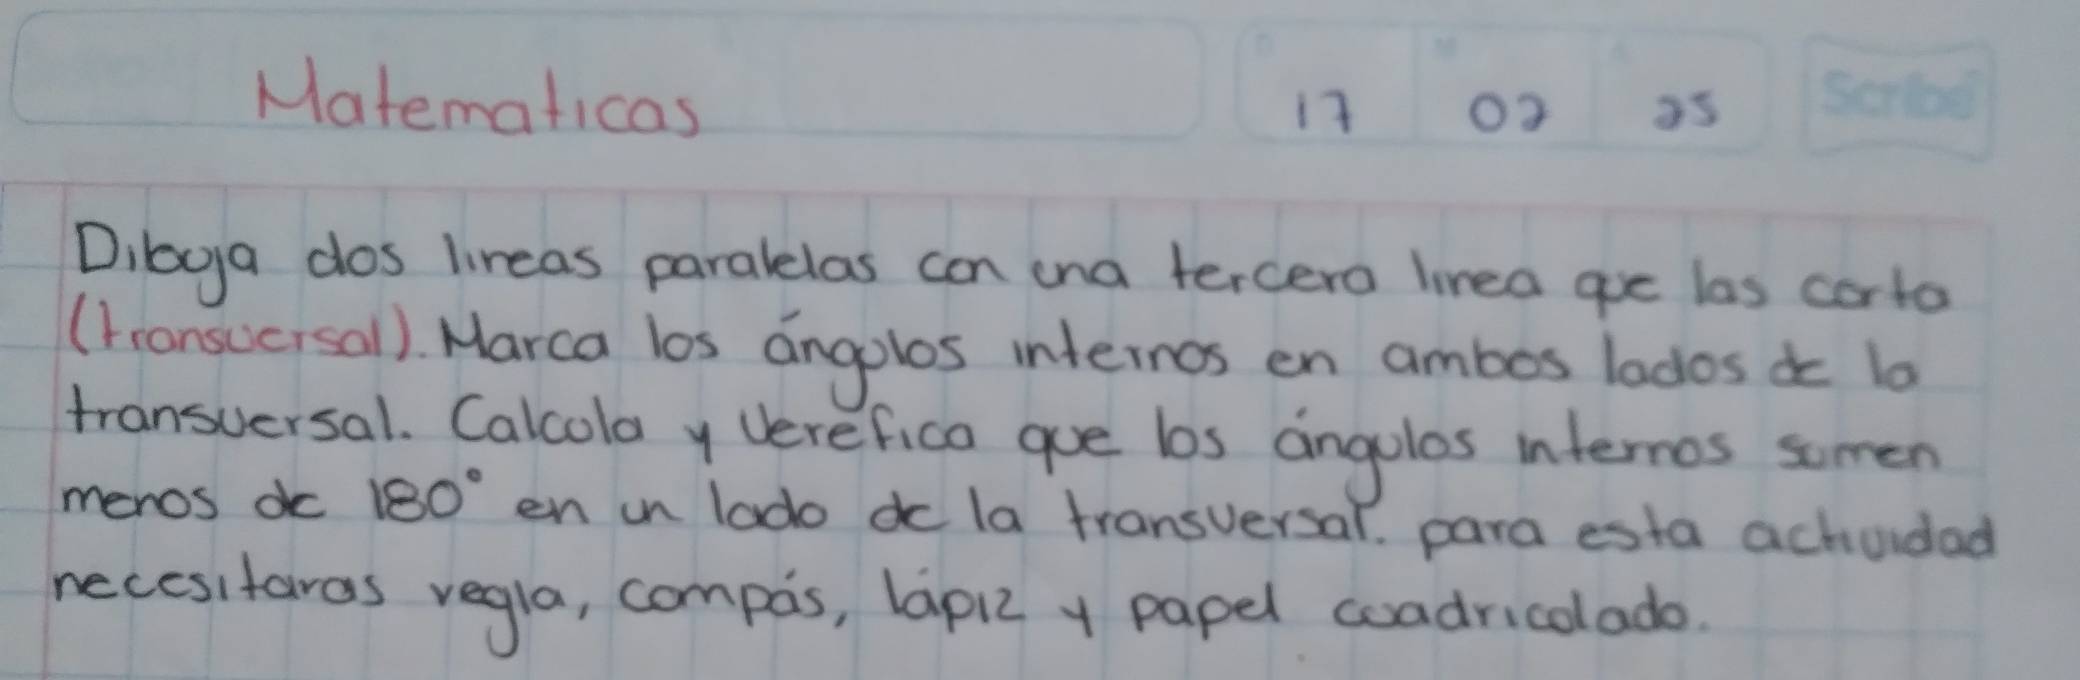 Matematicas
17 02 25 Scribe
Dibuja dos lineas paralelas con una tercera linea que las corta
(transversal). Marca los ángulos internos en ambos lados de la
transversal. Calcula y Verefica que los ángulos internos sumen
menos de 180° en un lado de la transversal. para esta actividad
necesitaras regla, compás, lápiz y papel cuadriculado.